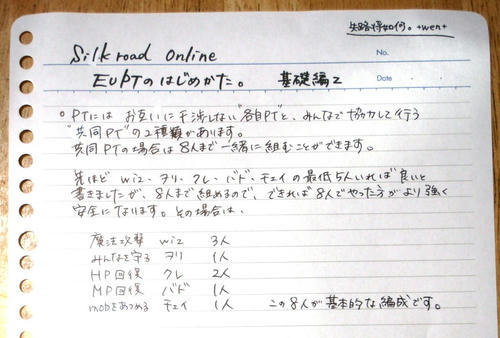 失路将如何。+wen+
Silkroad Online
No.
EUPTのはじめかた。 基礎編2
Date
○PTには お互いに干渉しない"各自PT"と、みんなで協力して行う
"共同PT"の2種類があります。
共同PTの場合は8人まで一緒に組むことができます。
先ほど wiz、ヲリ、クレ、バド、チェイの最低5人いれば良いと
書きましたが、8人まで組めるので、できれば8人でやった方がより強く
安全になります。その場合は、
魔法攻撃 wiz 3人
みんなを守る ヲリ 1人
HP回復 クレ 2人
MP回復 バド 1人
mobをあつめる チェイ 1人 この8人が基本的な編成です。